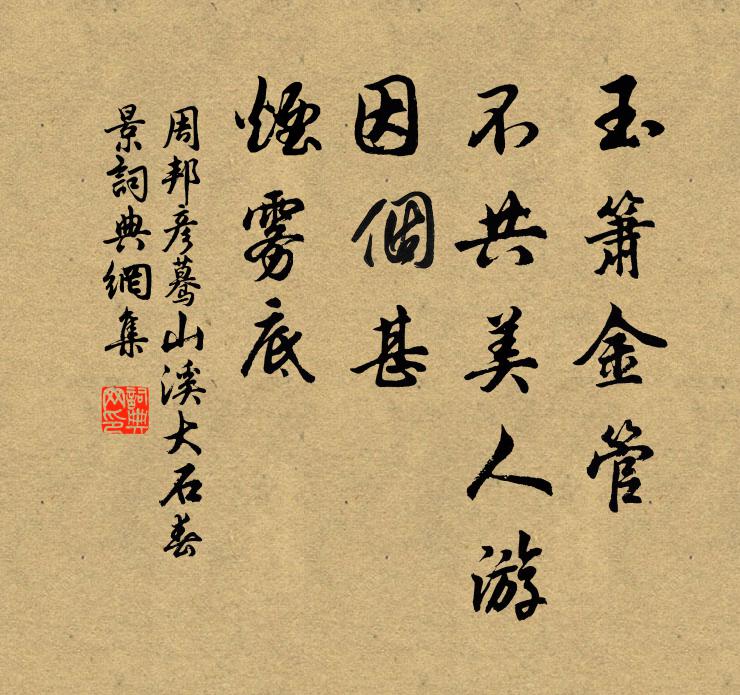 玉簫金管
不共美人游
因個甚
煙霧底
周邦彥驀山溪大石春
景詞典網集
詞典
网印